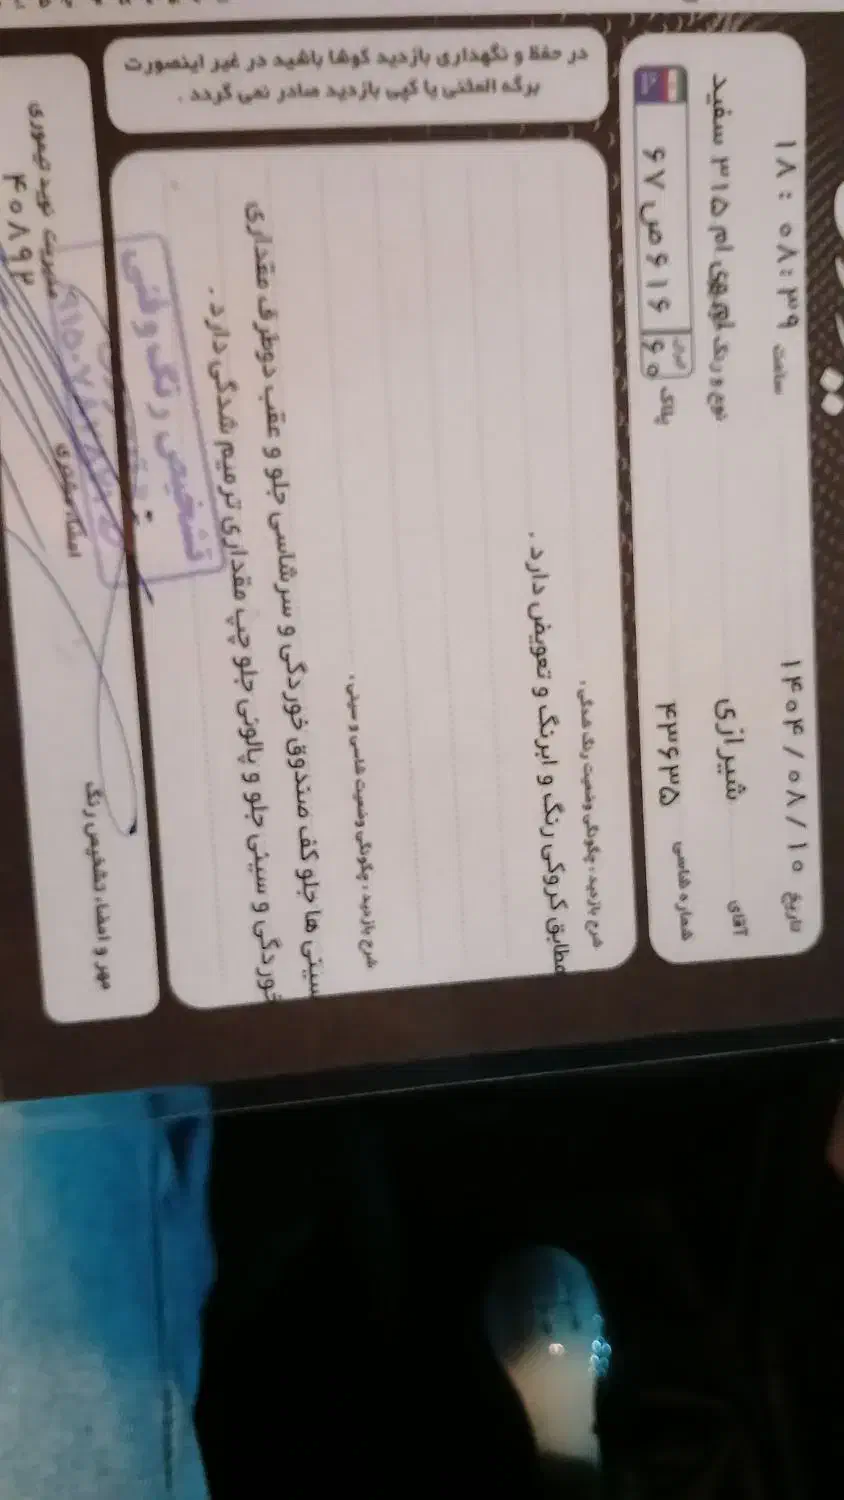 تاریخ ۱۴۰۴/۰۸/۱۰
ساعت ۱۸:۰۸:۳۹
آقای شیرازی
نوع و رنگ ام وی ام ۳۱۵ سفید
شماره شاسی ۴۳۶۳۵
پلاک ۶۷ ص ۶۱۶ ایران ۶۰
شرح بازدید، چگونگی وضعیت رنگ شدگی:
مطابق کروکی رنگ و ابرنگ و تعویض دارد.
شرح بازدید، چگونگی وضعیت شاسی و سینی:
سینی ها جلو کف صندوق خوردگی و سرشاسی جلو و عقب دوطرف مقداری
خوردگی و سینی جلو و پالونی جلو چپ مقداری ترمیم شدگی دارد.
در حفظ و نگهداری بازدید کوشا باشید در غیر اینصورت
برگه المثنی یا کپی بازدید صادر نمی گردد.
مهر و امضاء تشخیص رنگ
امضاء مشتری
مدیریت نوید تیموری
تشخیص رنگ و فنی